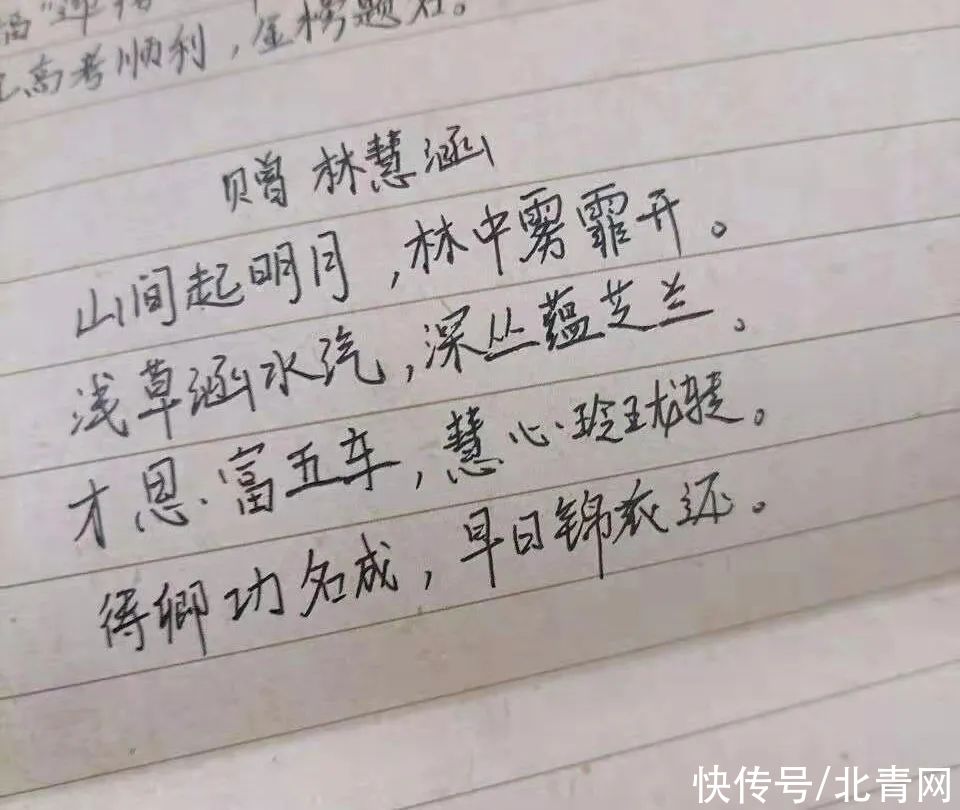 高考顺利，金榜题名。
赠林慧涵
山间起明月，林中雾霏开。
浅草涵水汽，深丛蕴芝兰。
才思富五车，慧心玲珑转。
得卿功名成，早日锦衣还。
快传号/北青网